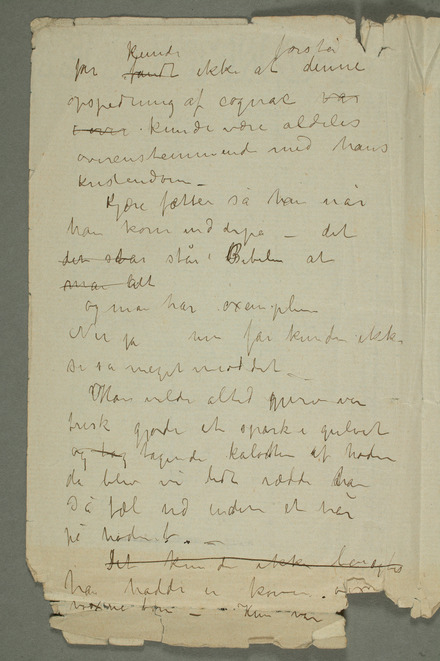 kunde forstå
far fandt ikke at denne
opspædning af cognac var
kunde være aldeles
overensstemmend med hans
kristendom –
Kjære fætter så han når
han kom ind – det
det står i Bibelen at
man alt
og man har exempler
Nu ja far kunde ikke
si så meget mod det –
Han vilde altid
frisk gjorde et spark i gulvet
og tog tagende kalotten af hodet
da blev vi lidt rædde han
så fæl ud uden et hår
på hodet. –
Det kunde ikke
han hadde en
voxne – hun var